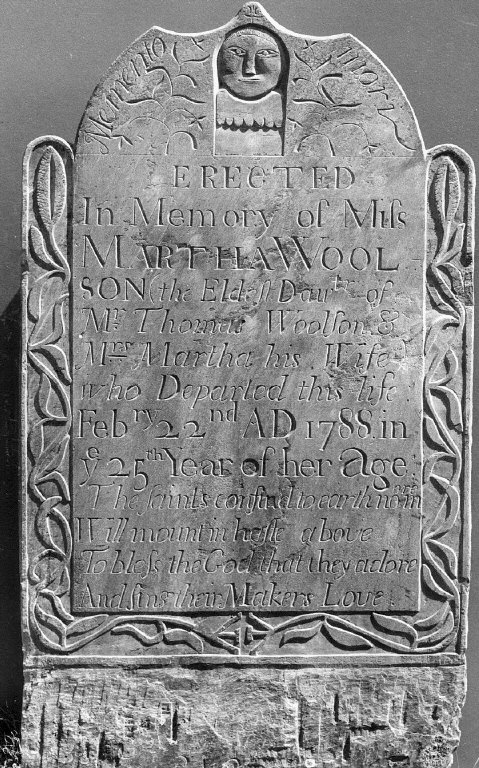 Memento mori
ERECTED
In Memory of Miſs
MARTHA WOOL
SON (the Eldeſt Dawtr of
Mr Thomas Woolſon &
Mrs Martha his Wife)
who Departed this life
Febry 22nd AD 1788. in
ye 25th Year of her Age.
The ſaints confin'd to earth no more
Will mount in haſte above
To bleſs the God that they adore
And ſing their Makers Love